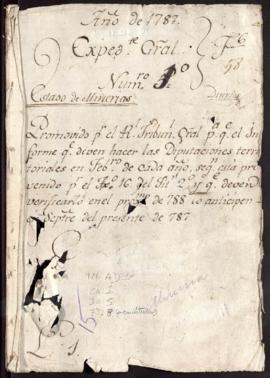 Año de 1787.
Exped.te Gral.
Num.ro 1º
Estado de Minerias
Promovido p.r el Rl. Tribunl. Gral p.a q.e el In
forme q.e deven hacer las Diputaciones terri
toriales en Feb.ro de cada año, seg.n está pre
venido p.r el 16 del 2º y q.e deven
verificarlo en el prox.mo de 788 lo anticipen
Sep.tre del presente de 787